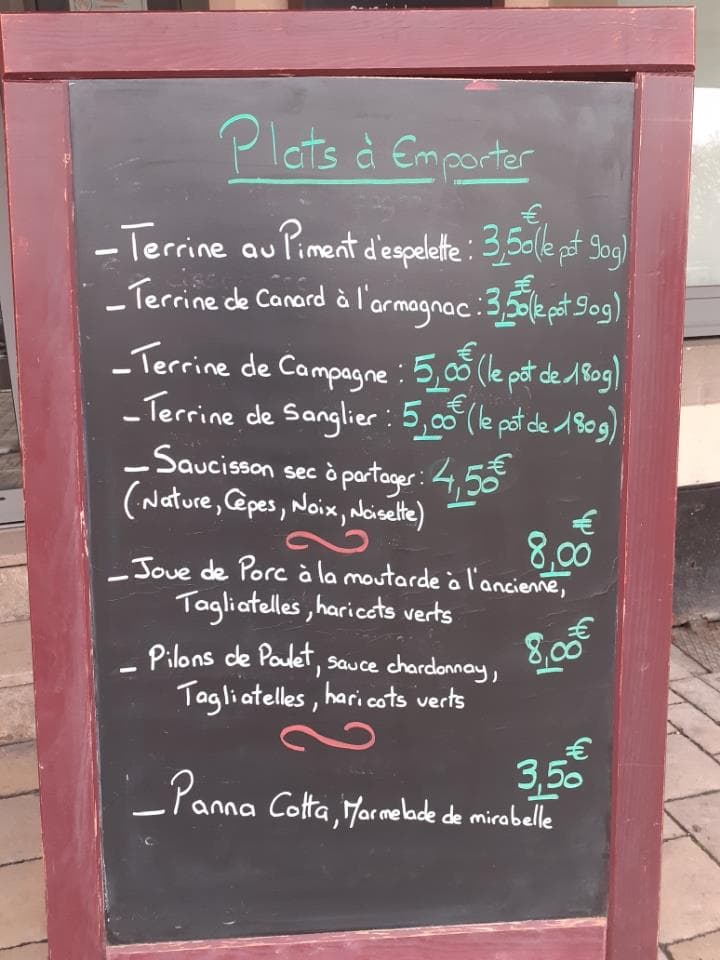 Plats à Emporter
- Terrine au Piment d'espelette : 3,50€ (le pot 90g)
- Terrine de Canard à l'armagnac : 3,50€ (le pot 90g)
- Terrine de Campagne : 5,00€ (le pot de 180g)
- Terrine de Sanglier : 5,00€ (le pot de 180g)
- Saucisson sec à partager : 4,50€
(Nature, Cèpes, Noix, Noisette)
8,00€
- Joue de Porc à la moutarde à l'ancienne,
Tagliatelles, haricots verts
8,00€
- Pilons de Poulet, sauce chardonnay,
Tagliatelles, haricots verts
3,50€
- Panna Cotta, Marmelade de mirabelle